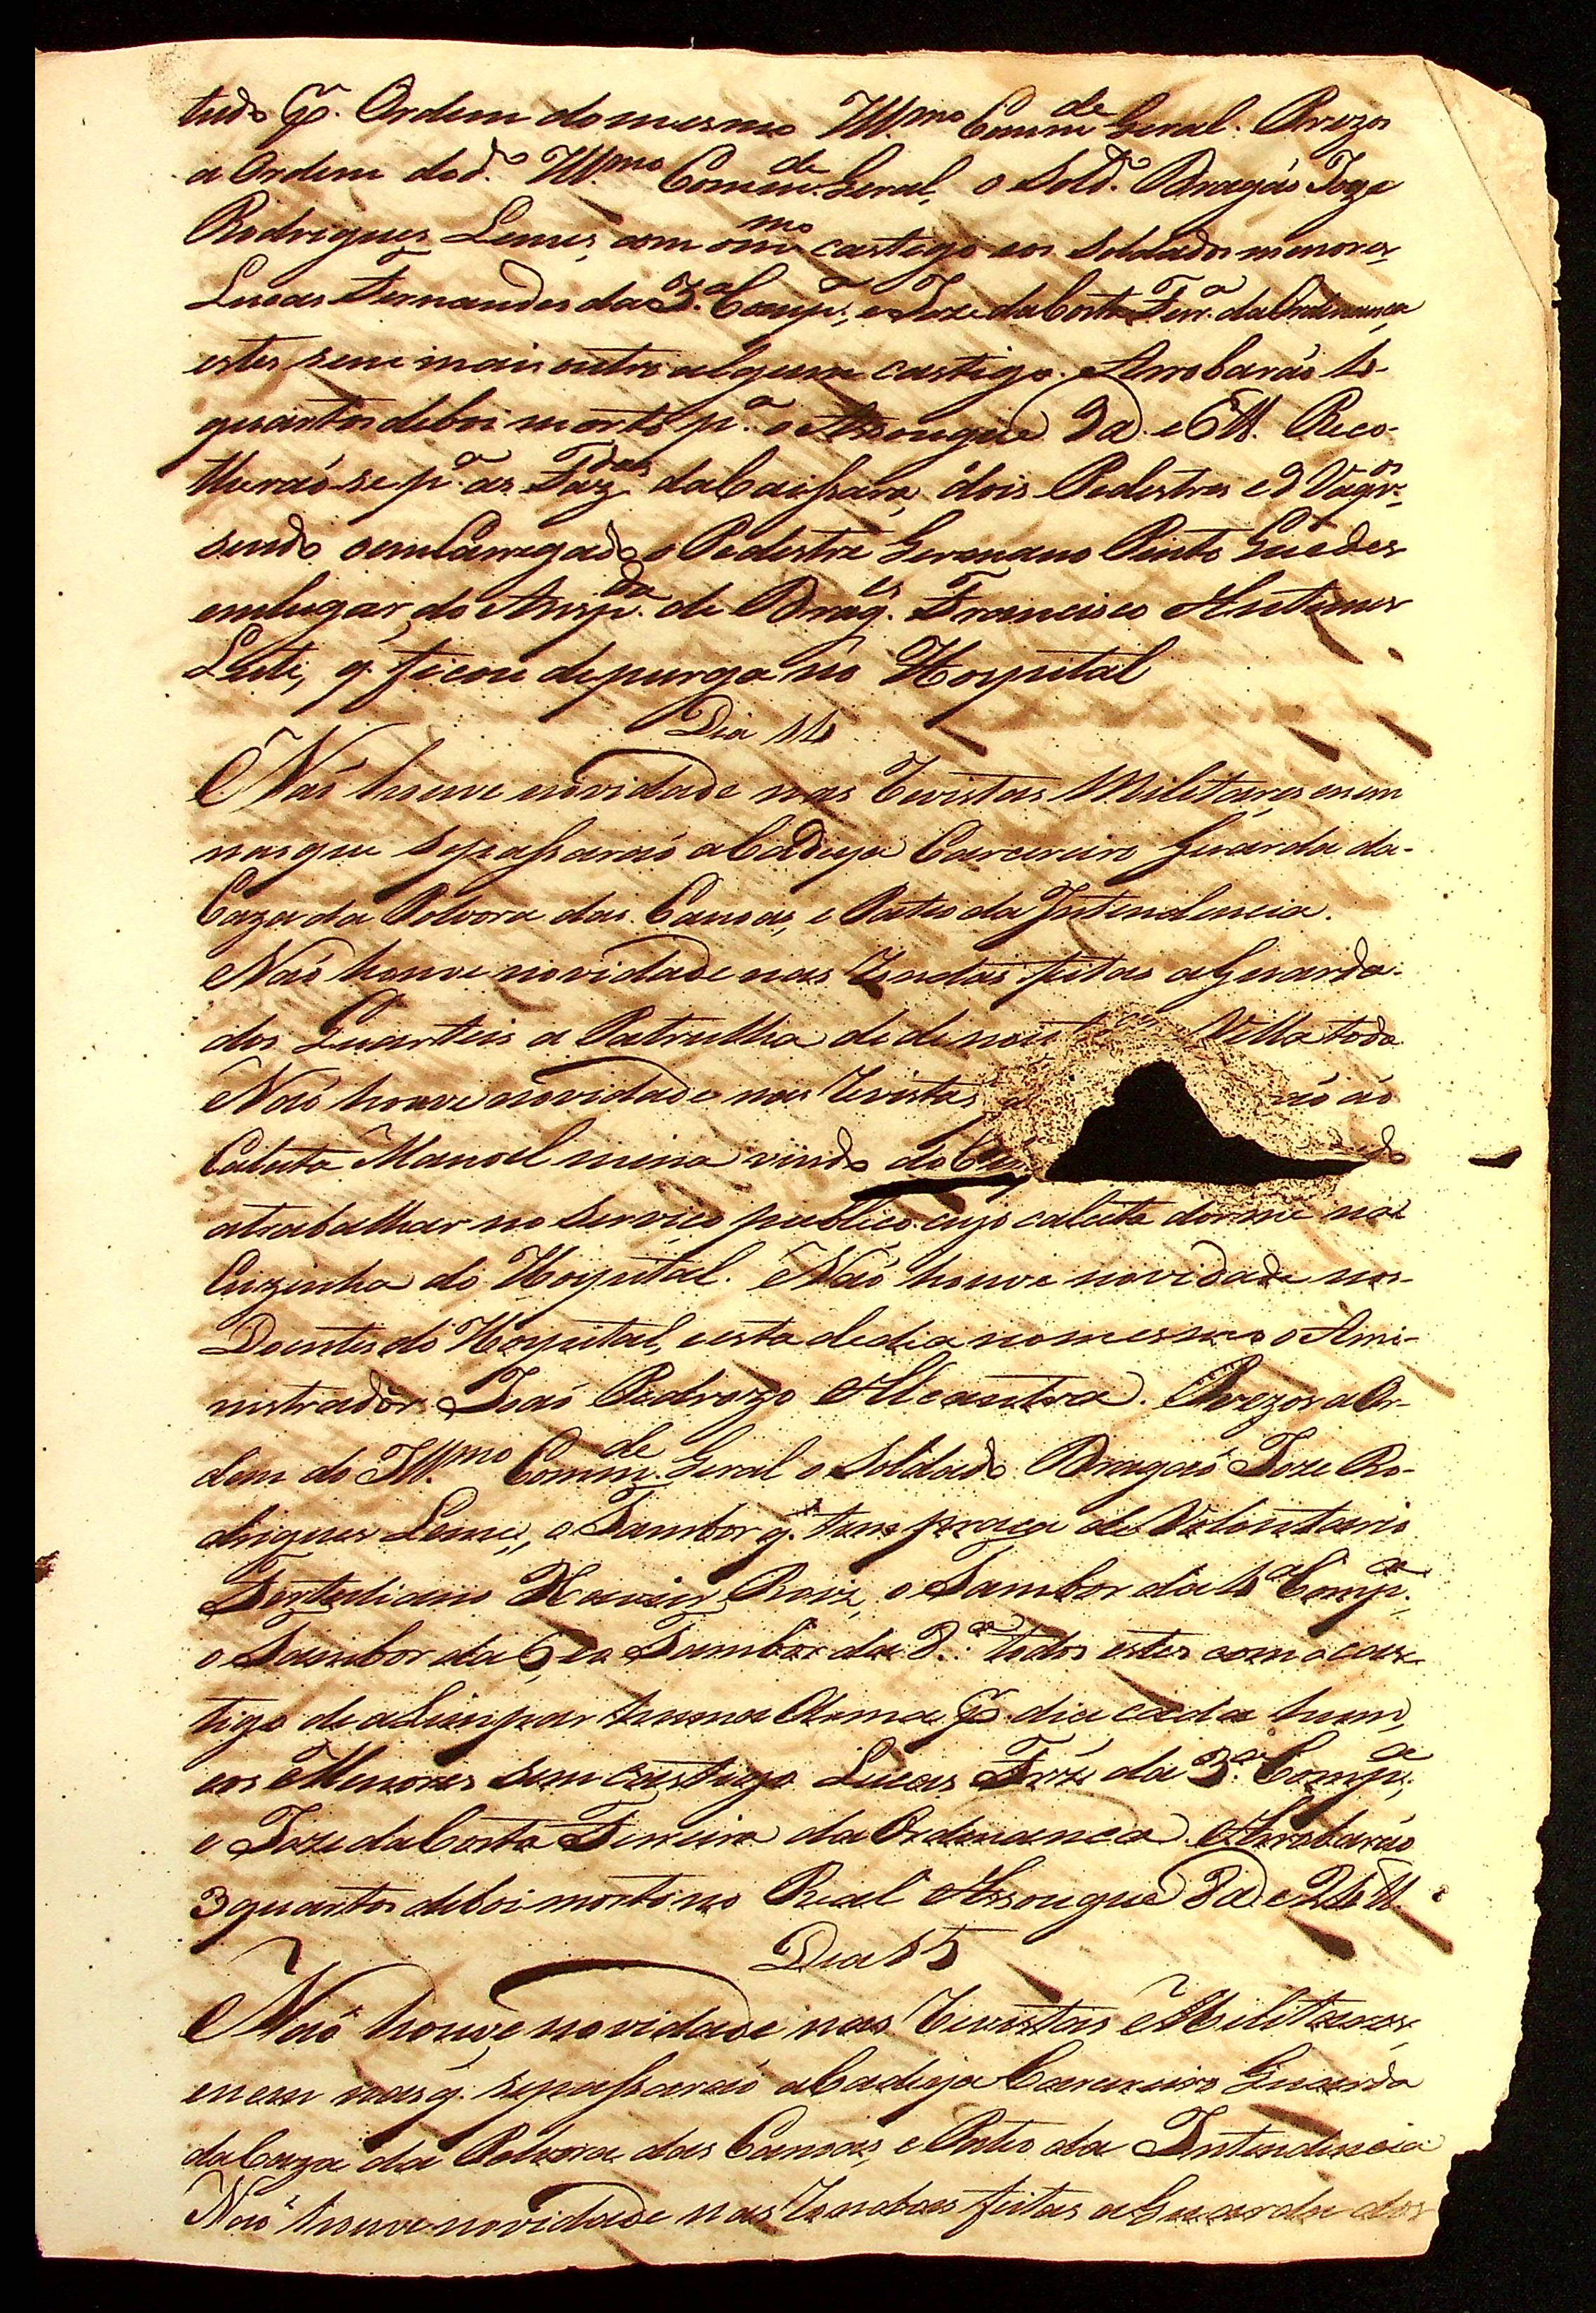 tudo p.r Ordem do mesmo Ill.mo Comm.de Geral. Prezos
a Ordem do d.o Ill.mo Comm.de Geral, o Sold.o Dragaó Joze
Rodrigues Leme, com o m.mo castigo eos Soldados menores
Lucas Fernandes da 3.a Comp.a, e Joze da Costa Ferr.a da Ordenança,
estes sem mais outro algum castigo. Arrobaraó 4
quartos deboi morto p.a o Assougue 9 @ e 6 ll. Reco-
lheraó-se p.a as Faz.das da Caissara, dois Pedestres e 9 Vaq.ros
sendo o emcarregado o Pedestre Germano Pinto Guedes
emlugar do Ansp.da de Drag.es Francisco Antunes
Leite, q. ficou de purga no Hospital
Dia 14
Naó houve novidade nas Revistas Militares enem
nasque sepassaraó a Cadeya Carcereiro Guarda da
Caza da Polvora das Canoas, e Pateo da Intendencia.
Naó houve novidade nas Rondas feitas a Guarda
dos Quarteis a Patrulha de de noit Villa toda
Naó houve novidade nas Revistas aó
Calceta Manoel mina vindo do
atrabalhar no Serviço publico cujo calceta dorme na
Cuzinha do Hospital. Naó houve novidade nos
Doentes do Hospital, eesta dedia nomesmo o Ami-
nistrador Joaó Pedrozo Alcantra. Prezos a Or-
dem do Ill.mo Comm.de Geral o Soldado Dragaó Joze Ro-
drigues Leme, o Tambor q. tem praça de Voluntario
Tertuliano Xavier Roiz, o Tambor da 1.a Comp.a,
o Tambor da 6, eo Tambor da 3.a todos estes com o cas-
tigo de aLimpar huma Arma p.r dia cada hum,
eos Menores sem castigo Lucas Frz da 3.a Comp.a,
e Joze da Costa Ferreira da Ordenança. Arrobaraó
3 quartos deboi morto no Real Assougue 8 @ e 24 ll.
Dia 15
Naó houve novidade nas Revistas Militares,
enem nasq. sepassaraó a Cadeya Carcereiro Guarda
da Caza da Polvora das Canoas, e Pateo da Intendencia
Naó houve novidade nas Rondas feitas a Guarda dos